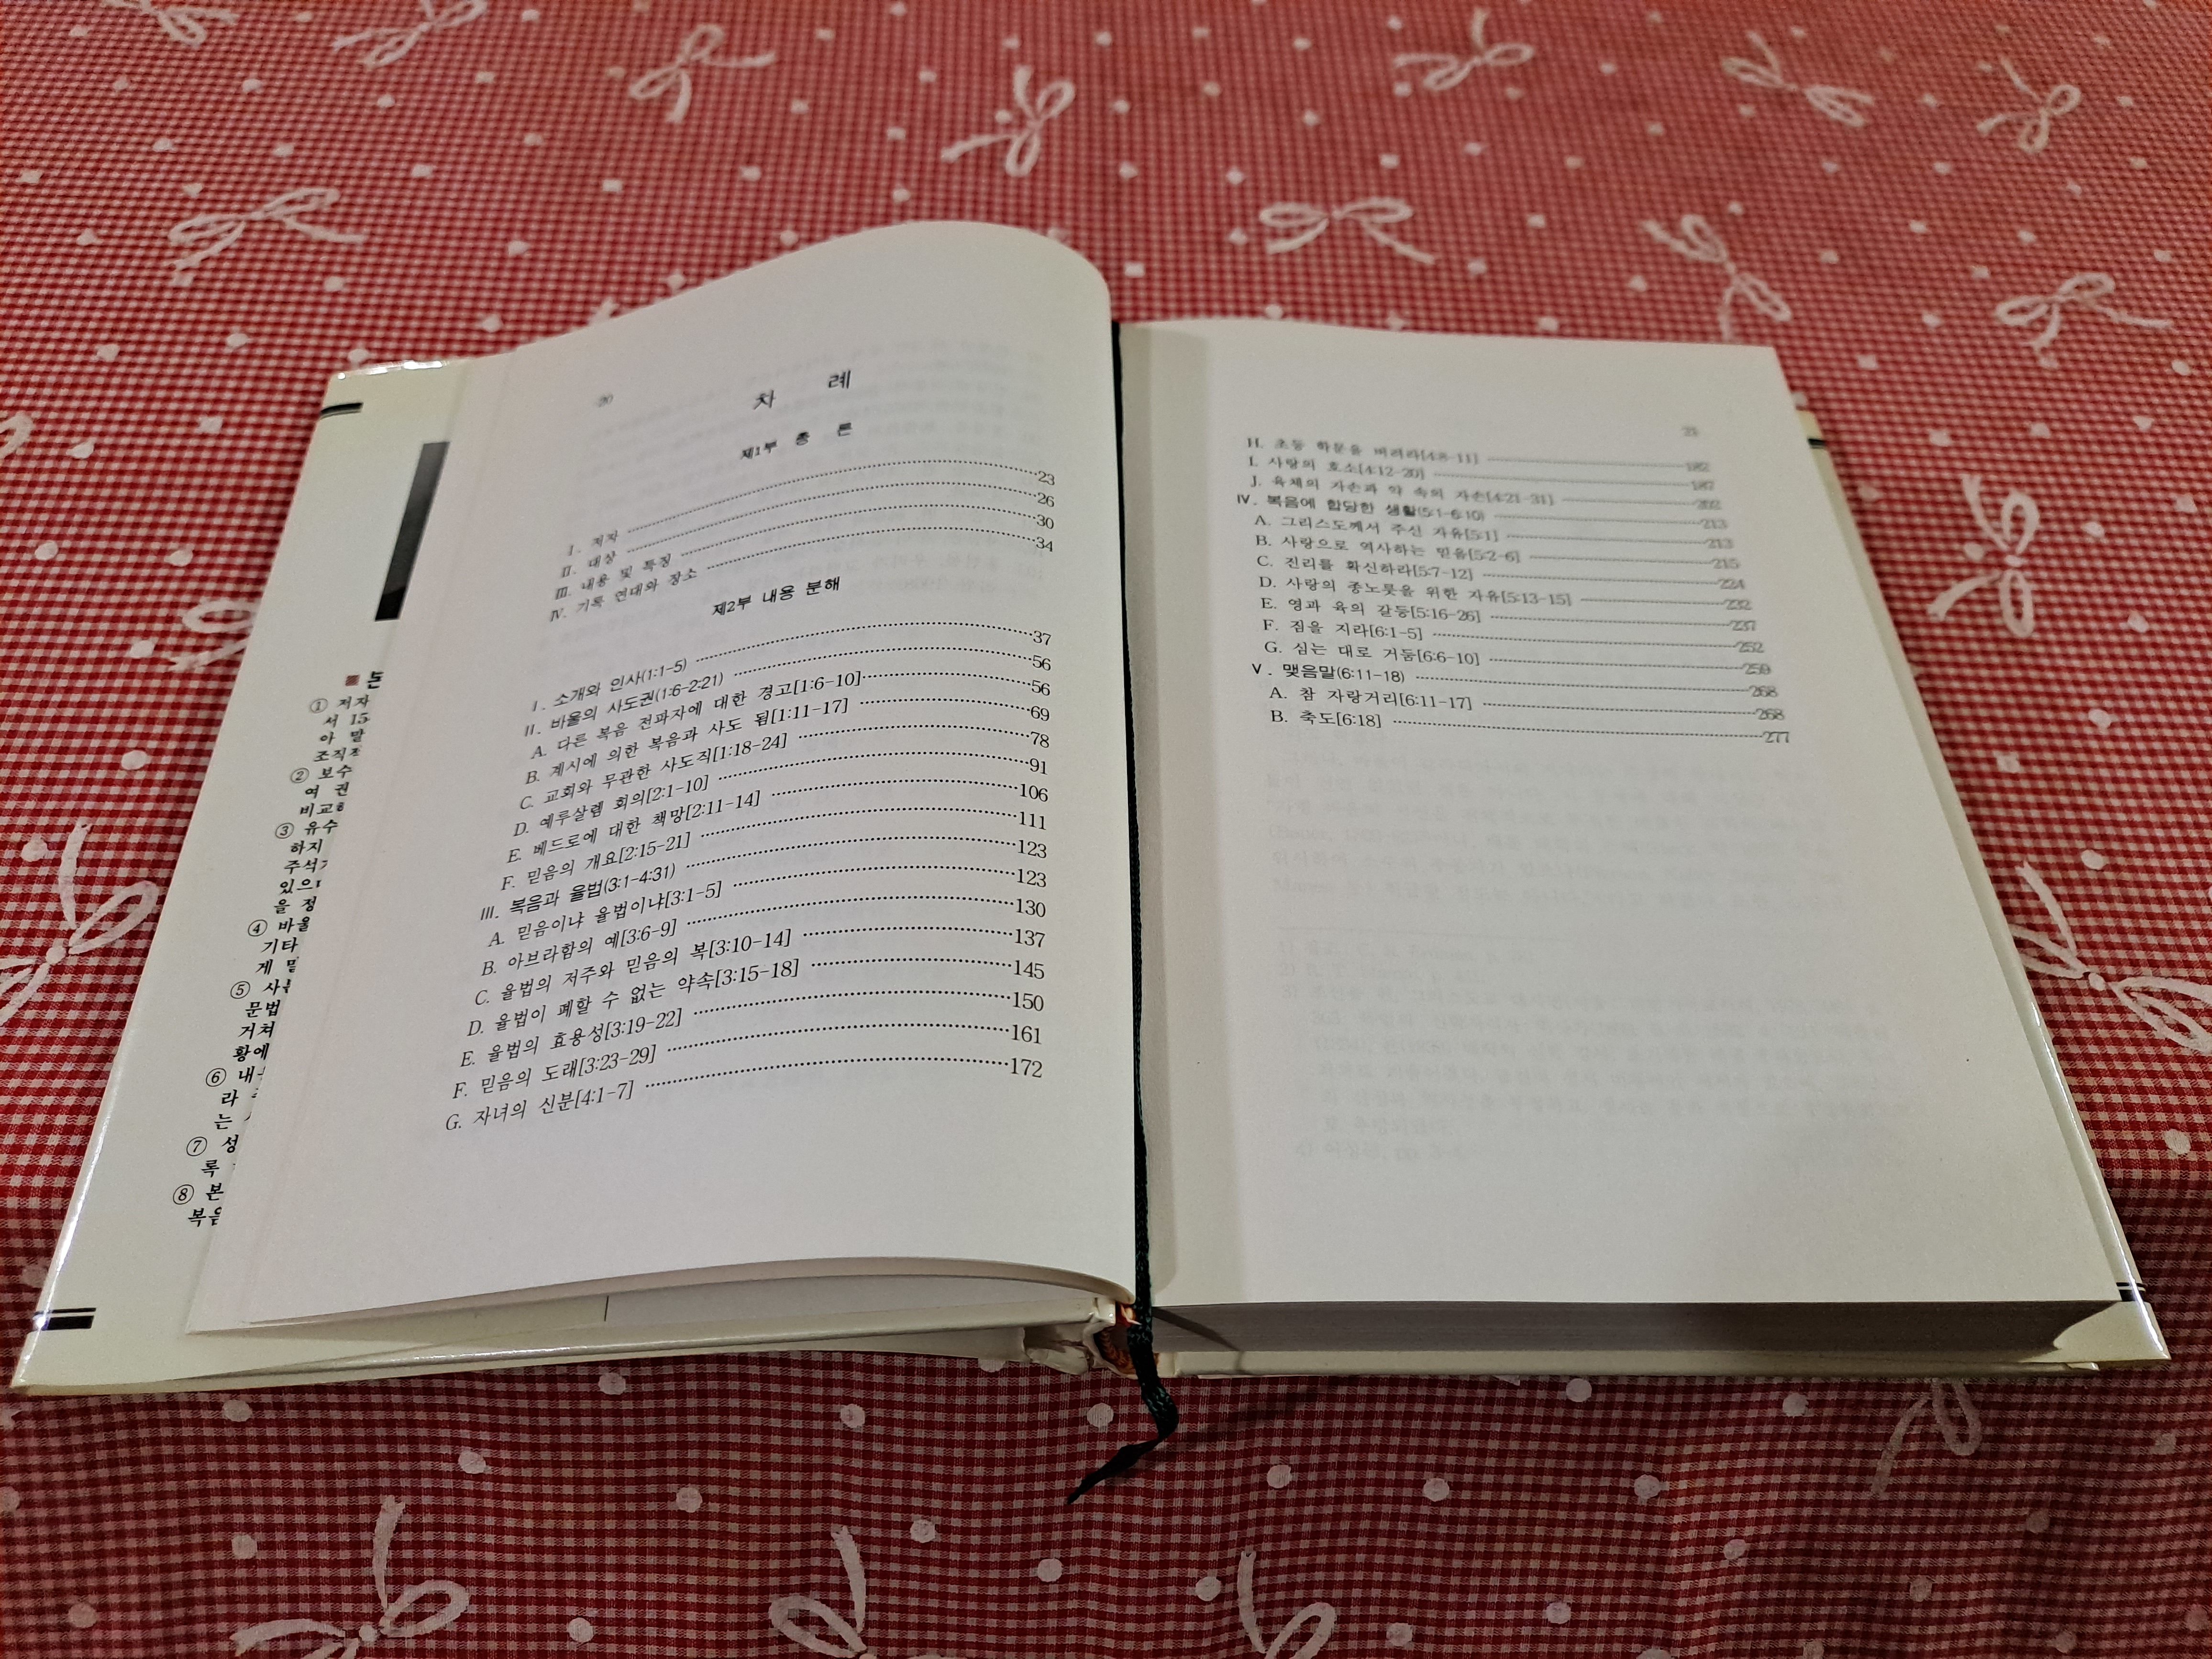 ■ 본
① 저자
서 15
아 말
조직적
② 보수
여 권
비교
③ 유수
하지
주석
있으
을 정
④ 바울
기타
게
⑤ 사
문법
거쳐
황에
⑥ 내
라
는
⑦ 성
록
⑧ 본
복음
20
차 례
제1부 총 론
Ⅰ. 저자 23
Ⅱ. 대상 26
Ⅲ. 내용 및 특징 30
Ⅳ. 기록 연대와 장소 34
제2부 내용 분해
Ⅰ. 소개와 인사(1:1-5) 37
Ⅱ. 바울의 사도권(1:6-2:21) 56
A. 다른 복음 전파자에 대한 경고[1:6-10] 56
B. 계시에 의한 복음과 사도 됨[1:11-17] 69
C. 교회와 무관한 사도직[1:18-24] 78
D. 예루살렘 회의[2:1-10] 91
E. 베드로에 대한 책망[2:11-14] 106
F. 믿음의 개요[2:15-21] 111
Ⅲ. 복음과 율법(3:1-4:31) 123
A. 믿음이냐 율법이냐[3:1-5] 123
B. 아브라함의 예[3:6-9] 130
C. 율법의 저주와 믿음의 복[3:10-14] 137
D. 율법이 폐할 수 없는 약속[3:15-18] 145
E. 율법의 효용성[3:19-22] 150
F. 믿음의 도래[3:23-29] 161
G. 자녀의 신분[4:1-7] 172
21
H. 초등 학문을 버려라[4:8-11] 182
I. 사랑의 호소[4:12-20] 187
J. 육체의 자손과 약 속의 자손[4:21-31] 202
Ⅳ. 복음에 합당한 생활(5:1-6:10) 213
A. 그리스도께서 주신 자유[5:1] 213
B. 사랑으로 역사하는 믿음[5:2-6] 215
C. 진리를 확신하라[5:7-12] 224
D. 사랑의 종노릇을 위한 자유[5:13-15] 232
E. 영과 육의 갈등[5:16-26] 237
F. 짐을 지라[6:1-5] 252
G. 심는 대로 거둠[6:6-10] 259
Ⅴ. 맺음말(6:11-18) 268
A. 참 자랑거리[6:11-17] 268
B. 축도[6:18] 277